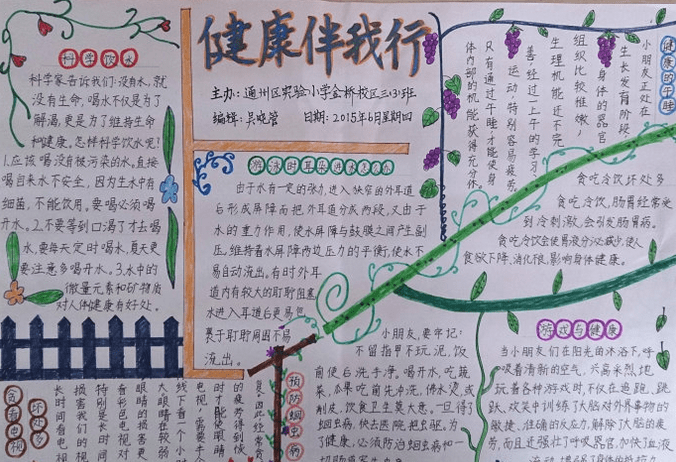 健康伴我行
主办:通州区实验小学金桥校区三(3)班
编辑:吴晓管 日期:2015年6月星期四
科学饮水
科学家告诉我们:没有水,就
没有生命。喝水不仅是为了
解渴,更是为了维持生命
和健康。怎样科学饮水呢?
1.应该喝没有被污染的水。直接
喝自来水不安全,因为生水中有
细菌,不能饮用。要喝必须喝
开水。2.不要等到口渴了才去喝
水,要每天定时喝水,夏天更
要注意多喝开水。3.水中的
微量元素和矿物质
对人体健康有好处。
游泳时耳朵进水怎么办
由于水有一定的张力,进入狭窄的外耳道
后形成屏障而把外耳道分成两段,又由于
水的重力作用,使水屏障与鼓膜之间产生副
压,维持着水屏障两边压力的平衡,使水不
易自动流出。有时外耳
道内有较大的耵耵阻塞
水进入耳道后更易包
裹于耵耵周围不易
流出。
健康的午睡
小朋友正处在
生长发育阶段
,身体的器官
组织比较稚嫩,
生理机能还不完
善,经过一上午的学习
、运动,特别容易疲劳,
只有通过午睡才能使身
体内部的机能获得充分休
贪吃冷饮坏处多
贪吃冷饮,肠胃经常受
到冷刺激,会引发肠胃病。
贪吃冷饮会使胃液分泌减少,使人
食欲下降,消化很,影响身体健康。
游戏与健康
当小朋友们在阳光的沐浴下,呼
吸着清新的空气,兴高采烈地
玩着各种游戏时,不仅在追跑、跳
跃、欢笑中训练了大脑对外界事物的
敏捷、准确的反应力,解除了大脑的疲
劳,而且还强壮了呼吸器官,加快了血液
预防蛔虫病
小朋友,要牢记:
不留指甲不玩泥,饭
前便后洗手净。喝开水,吃蔬
菜,瓜果吃前先冲洗,沸水烫,或
削皮,饮食卫生莫大意。一旦得了
蛔虫病,快去医院把虫驱。为
了健康,必须防治蛔虫病和一
贪看电视
坏处多
长时间看电视
损害我们的视
特别是长时间
看彩色电视对
眼睛的损害更
大眼睛在较弱
线下看一个小时
电视,需要半
时才能使眼睛
的疲劳得到恢